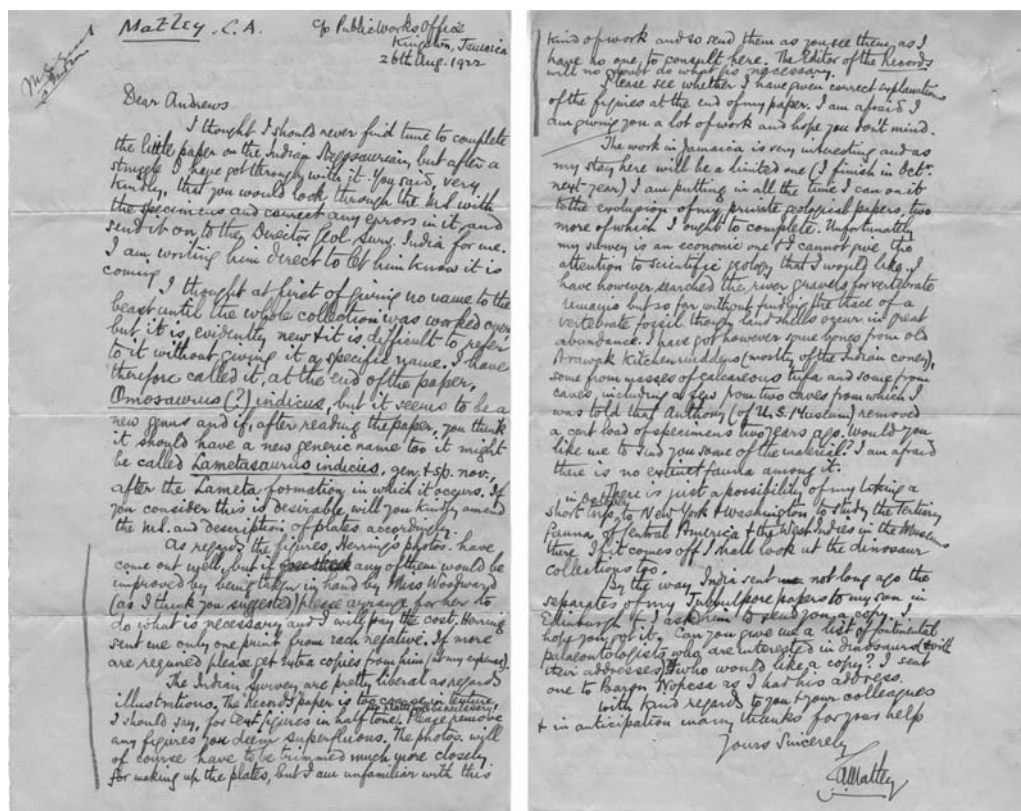 MATLEY. C.A.
c/o Public Works Office
Kingston, Jamaica
26th Aug. 1922
Dear Andrews
I thought I should never find time to complete
the little paper on the Indian Stegosaurian, but after a
struggle I have got through with it. You said, very
kindly, that you would look through the MS. with
the specimens and correct any errors in it, and
send it on to the Director Geol. Surv. India for me.
I am writing him direct to let him know it is
coming.
I thought at first of giving no name to the
beast until the whole collection was worked over,
but it is evidently new & it is difficult to refer
to it without giving it a specific name. I have
therefore called it, at the end of the paper,
Omosaurus (?) indicus, but it seems to be a
new genus and if, after reading the paper, you think
it should have a new generic name too it might
be called Lametasaurus indicus, gen. & sp. nov.,
after the Lameta formation in which it occurs. If
you consider this is desirable, will you kindly amend
the MS. and description of plates accordingly.
As regards the figures, Herring's photos. have
come out well, but if any of them would be
improved by being taken in hand by Miss Woodward
(as I think you suggested) please arrange for her to
do what is necessary and I will pay the cost. Herring
sent me only one print from each negative. If more
are required please get extra copies from him (at my expense).
The Indian Survey are pretty liberal as regards
illustrations. The Records paper is too coarse in texture,
so plates will be necessary,
I should say, for text figures in half tone. Please remove
any figures you deem superfluous. The photos. will
of course have to be trimmed much more closely
for making up the plates, but I am unfamiliar with this
kind of work and so send them as you see them, as I
have no one to consult here. The Editor of the Records
will no doubt do what is necessary.
Please see whether I have given correct explanations
of the figures at the end of my paper. I am afraid I
am giving you a lot of work and hope you don't mind.
The work in Jamaica is very interesting and as
my stay here will be a limited one (I finish in Octr.
next year) I am putting in all the time I can on it
to the exclusion of my private geological papers, two
more of which I ought to complete. Unfortunately
my survey is an economic one & I cannot give the
attention to scientific geology that I would like. I
have however searched the river gravels for vertebrate
remains but so far without finding the trace of a
vertebrate fossil though land shells occur in great
abundance. I have got however some bones from old
Arawak kitchen middens (mostly of the Indian coney),
some from masses of calcareous tufa and some from
caves, including a few from two caves from which I
was told that Anthony (of U.S. Museum) removed
a cart load of specimens two years ago. Would you
like me to send you some of the material? I am afraid
there is no extinct fauna among it.
There is just a possibility of my taking a
short trip, to New York & Washington to study the Tertiary
Fauna of Central America & the West Indies in the Museums
there. If it comes off I shall look at the dinosaur
collections too.
By the way India sent not long ago the
separates of my Jubbulpore papers to my son in
Edinburgh & I asked him to send you a copy. I
hope you got it. Can you give me a list of Continental
palaeontologists who are interested in dinosaurs (& with
their addresses) & who would like a copy? I sent
one to Baron Nopcsa as I had his address.
With kind regards to you & your colleagues
& in anticipation many thanks for your help
Yours Sincerely
CAMatley